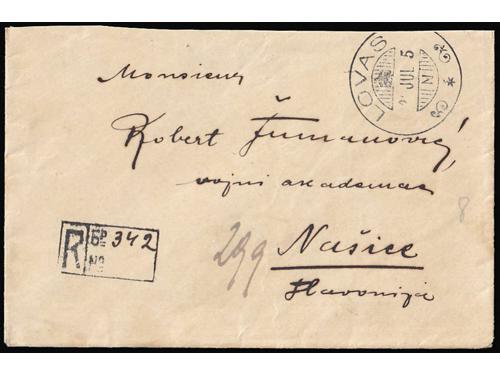 LOVAS
21 JUL 5
N
Monsieur
Robert Šumanović,
vojni akademac
R Бр 342
No
299
Našice
Slavonija
8